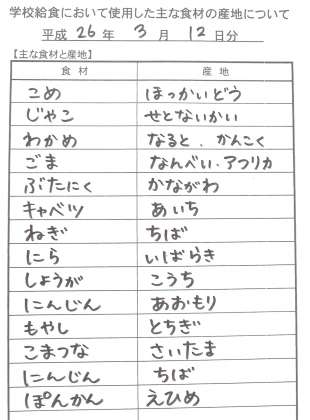 学校給食において使用した主な食材の産地について
平成 26 年 3 月 12 日分
【主な食材と産地】
食材 産地
こめ ほっかいどう
じゃこ せとないかい
わかめ なると、かんこく
ごま なんべい・アフリカ
ぶたにく かながわ
キャベツ あいち
ねぎ ちば
にら いばらき
しょうが こうち
にんじん あおもり
もやし とちぎ
こまつな さいたま
にんじん ちば
ぽんかん えひめ